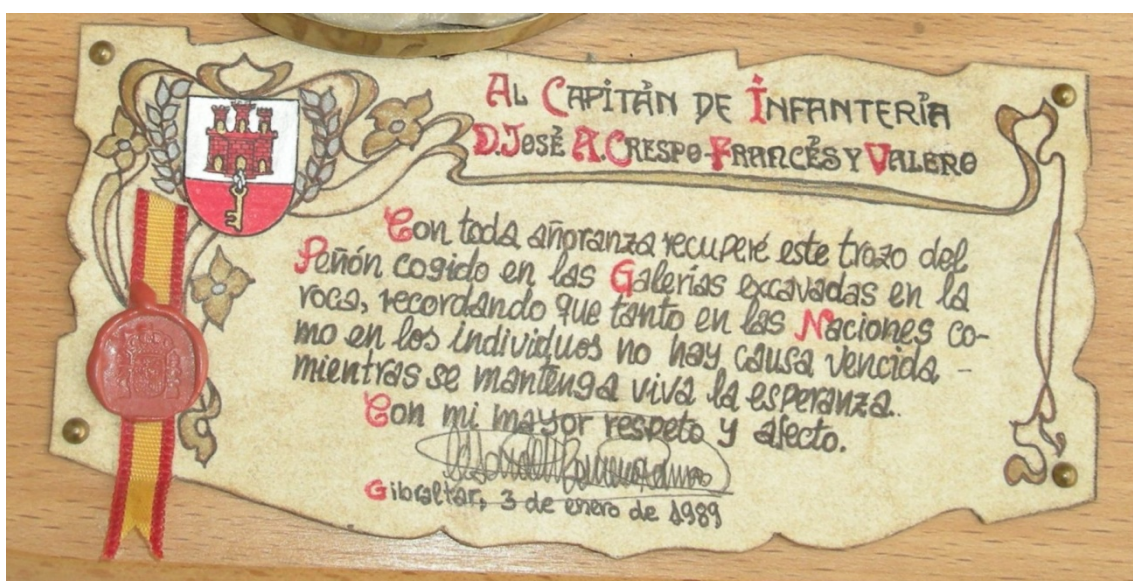 AL CAPITÁN DE INFANTERÍA
D. JOSÉ A. CRESPO-FRANCÉS Y VALERO
Con toda añoranza recuperé este trozo del
Peñón cogido en las Galerías excavadas en la
roca, recordando que tanto en las Naciones co-
mo en los individuos no hay causa vencida -
mientras se mantenga viva la esperanza.
Con mi mayor respeto y afecto.
Gibraltar, 3 de enero de 1989